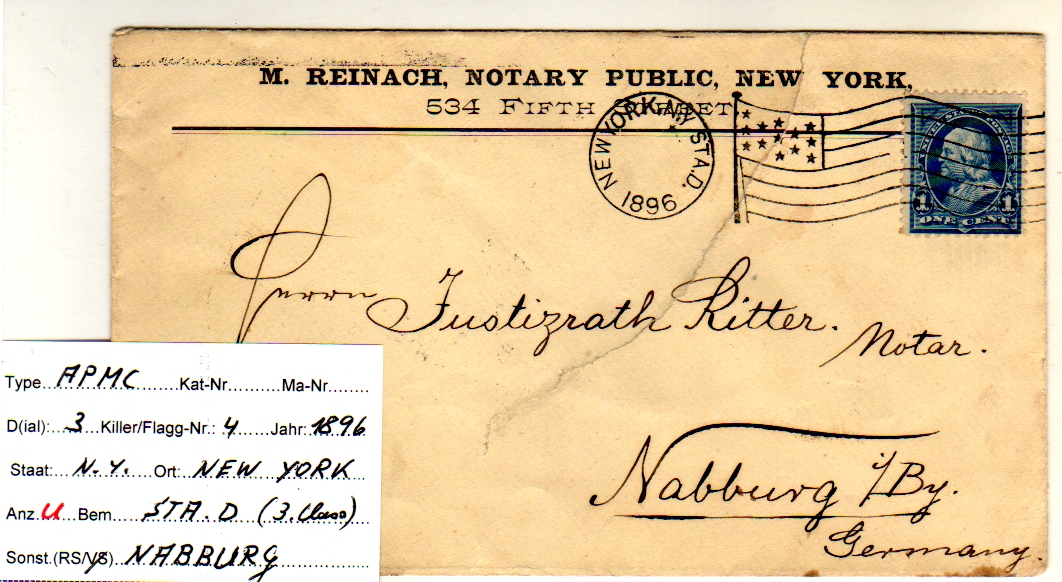 M. REINACH, NOTARY PUBLIC, NEW YORK,
534 FIFTH STREET
NEW YORK, N.Y. STA.D.
1896
UNITED STATES POSTAGE
1 1
ONE CENT
Herrn Justizrath Ritter.
Notar.
Nabburg i/By.
Germany.
Type...APMC.......Kat-Nr..........Ma-Nr........
D(ial):...3...Killer/Flagg-Nr.: 4......Jahr: 1896
Staat:....N.Y.... Ort: NEW YORK
Anz. U...Bem.....STA. D (3. Class)
Sonst.(RS/VS)..NABBURG